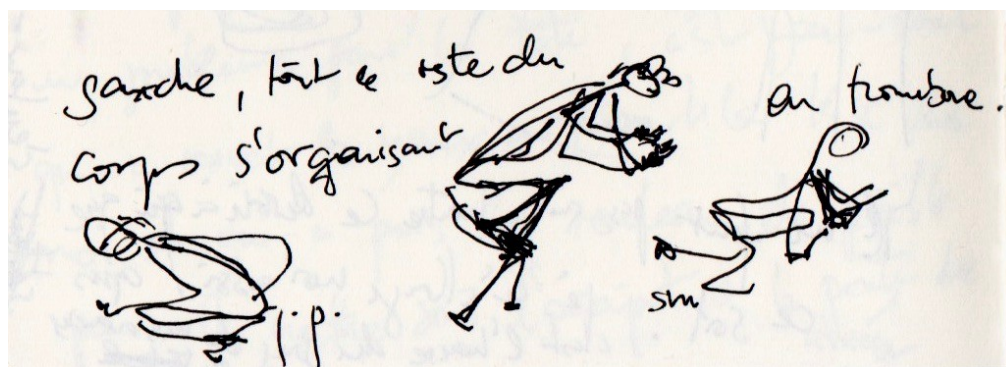 gauche, tout le reste du
corps s'organisant
en trombone.
p.p.
sm